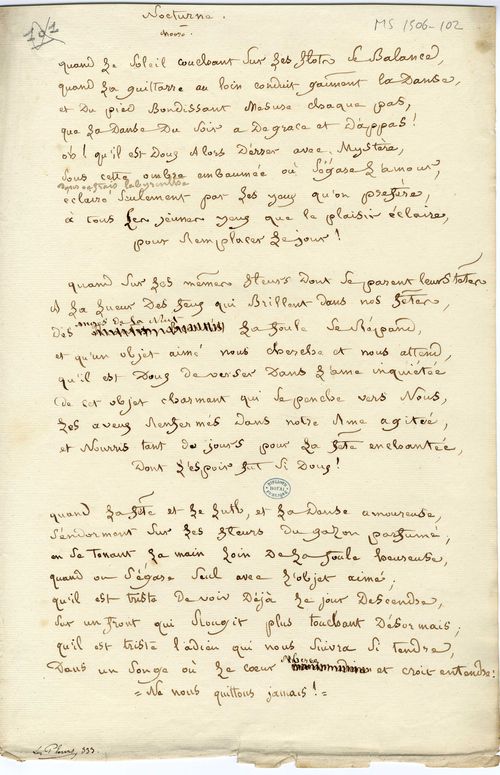 101
MS 1506-102
Nocturne.
quand le Soleil couchant Sur les flots se Balance,
quand la guittarre au loin conduit gaiment la Danse,
et Du pied Bondissant Mesure chaque pas,
que la Danse Du Soir a De grace et D'appas !
oh ! qu'il est Doux alors D'errer avec Mystère,
Sous cette ombre embaumée où S'égare l'amour,
labyrinthe
éclairé Seulement par les yeux qu'on préfère,
à tous les jeunes yeux que le plaisir éclaire,
pour Remplacer le jour !
quand Sur les mêmes fleurs Dont se parent leurs têtes
A la lueur Des feux qui Brillent dans nos fêtes,
De la Nuit
Des la foule Se Répand,
et qu'un objet aimé nous cherche et nous attend,
qu'il est Doux de verser Dans l'ame inquiétée
De cet objet charmant qui Se penche vers Nous,
les aveux Renfermés Dans notre Ame agitée,
et Nourris tant de jours pour la fête enchantée,
Dont l'espoir fut Si Doux !
quand la fête et le luth, et la Danse amoureuse,
S'endorment Sur les fleurs du gazon parfumé,
en Se tenant la main loin De la foule heureuse,
quand on S'égare Seul avec l'objet aimé ;
qu'il est triste de voir Déjà le jour Descendre,
Sur un front qui Rougit plus touchant Désormais ;
qu'il est triste l'adieu qui nous Suivra Si tendre,
Dans un Songe où le cœur et croit entendre :
= Ne nous quittons jamais ! =
Les Pleurs, 333.